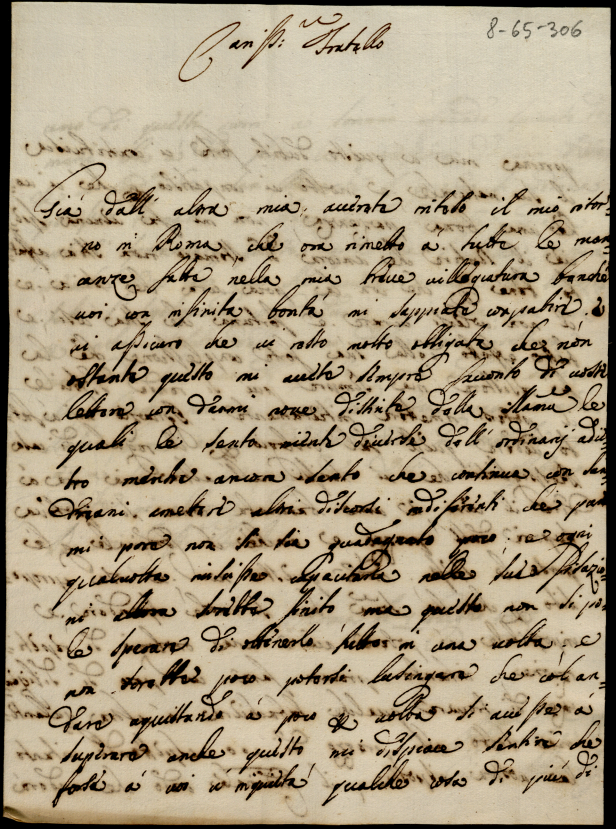 8-65-306
Cariss:mo Fratello
Già dall' altra mia averete inteso il mio ritor-
no in Roma che ora rimetto à tutte le man-
canze fatte nella mia breve villegiatura benche
voi con infinita bontà mi sappiate compatire e
vi assicuro che vi resto molto obligata che non
ostante questo mi avete sempre favorito di vostre
lettere con darmi nove distinte della Mamma le
quali le sento niente diverse dall' ordinarij
tro mentre ancora sento che continua con
Triani ametere altri discorsi indiferenti che par
mi pare non si sia guadagnato poco e ogni
qualvolta riuscisse capacitarla nelle sue
ni allora sarebbe finito ma questo non si po-
le sperare di ottenerlo tutto in una volta e
non sarebbe poco potersi lusingare che coll an-
dare aquistando à poco per volta si avesse à
superare anche questo mi dispiace sentire che
forsà à voi v'inquieta qualche cosa di più di